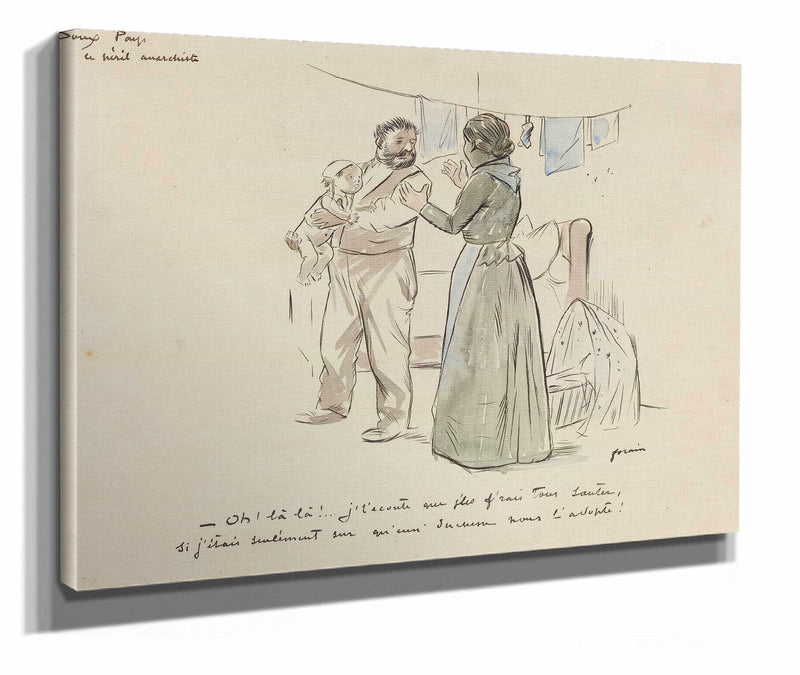 Doux Pays
Le péril anarchiste
forain
— Oh! là là!... j't'écoute que j'les f'rais tous sauter,
si j'étais seulement sur qu'eun' duchesse nous l'adopte!